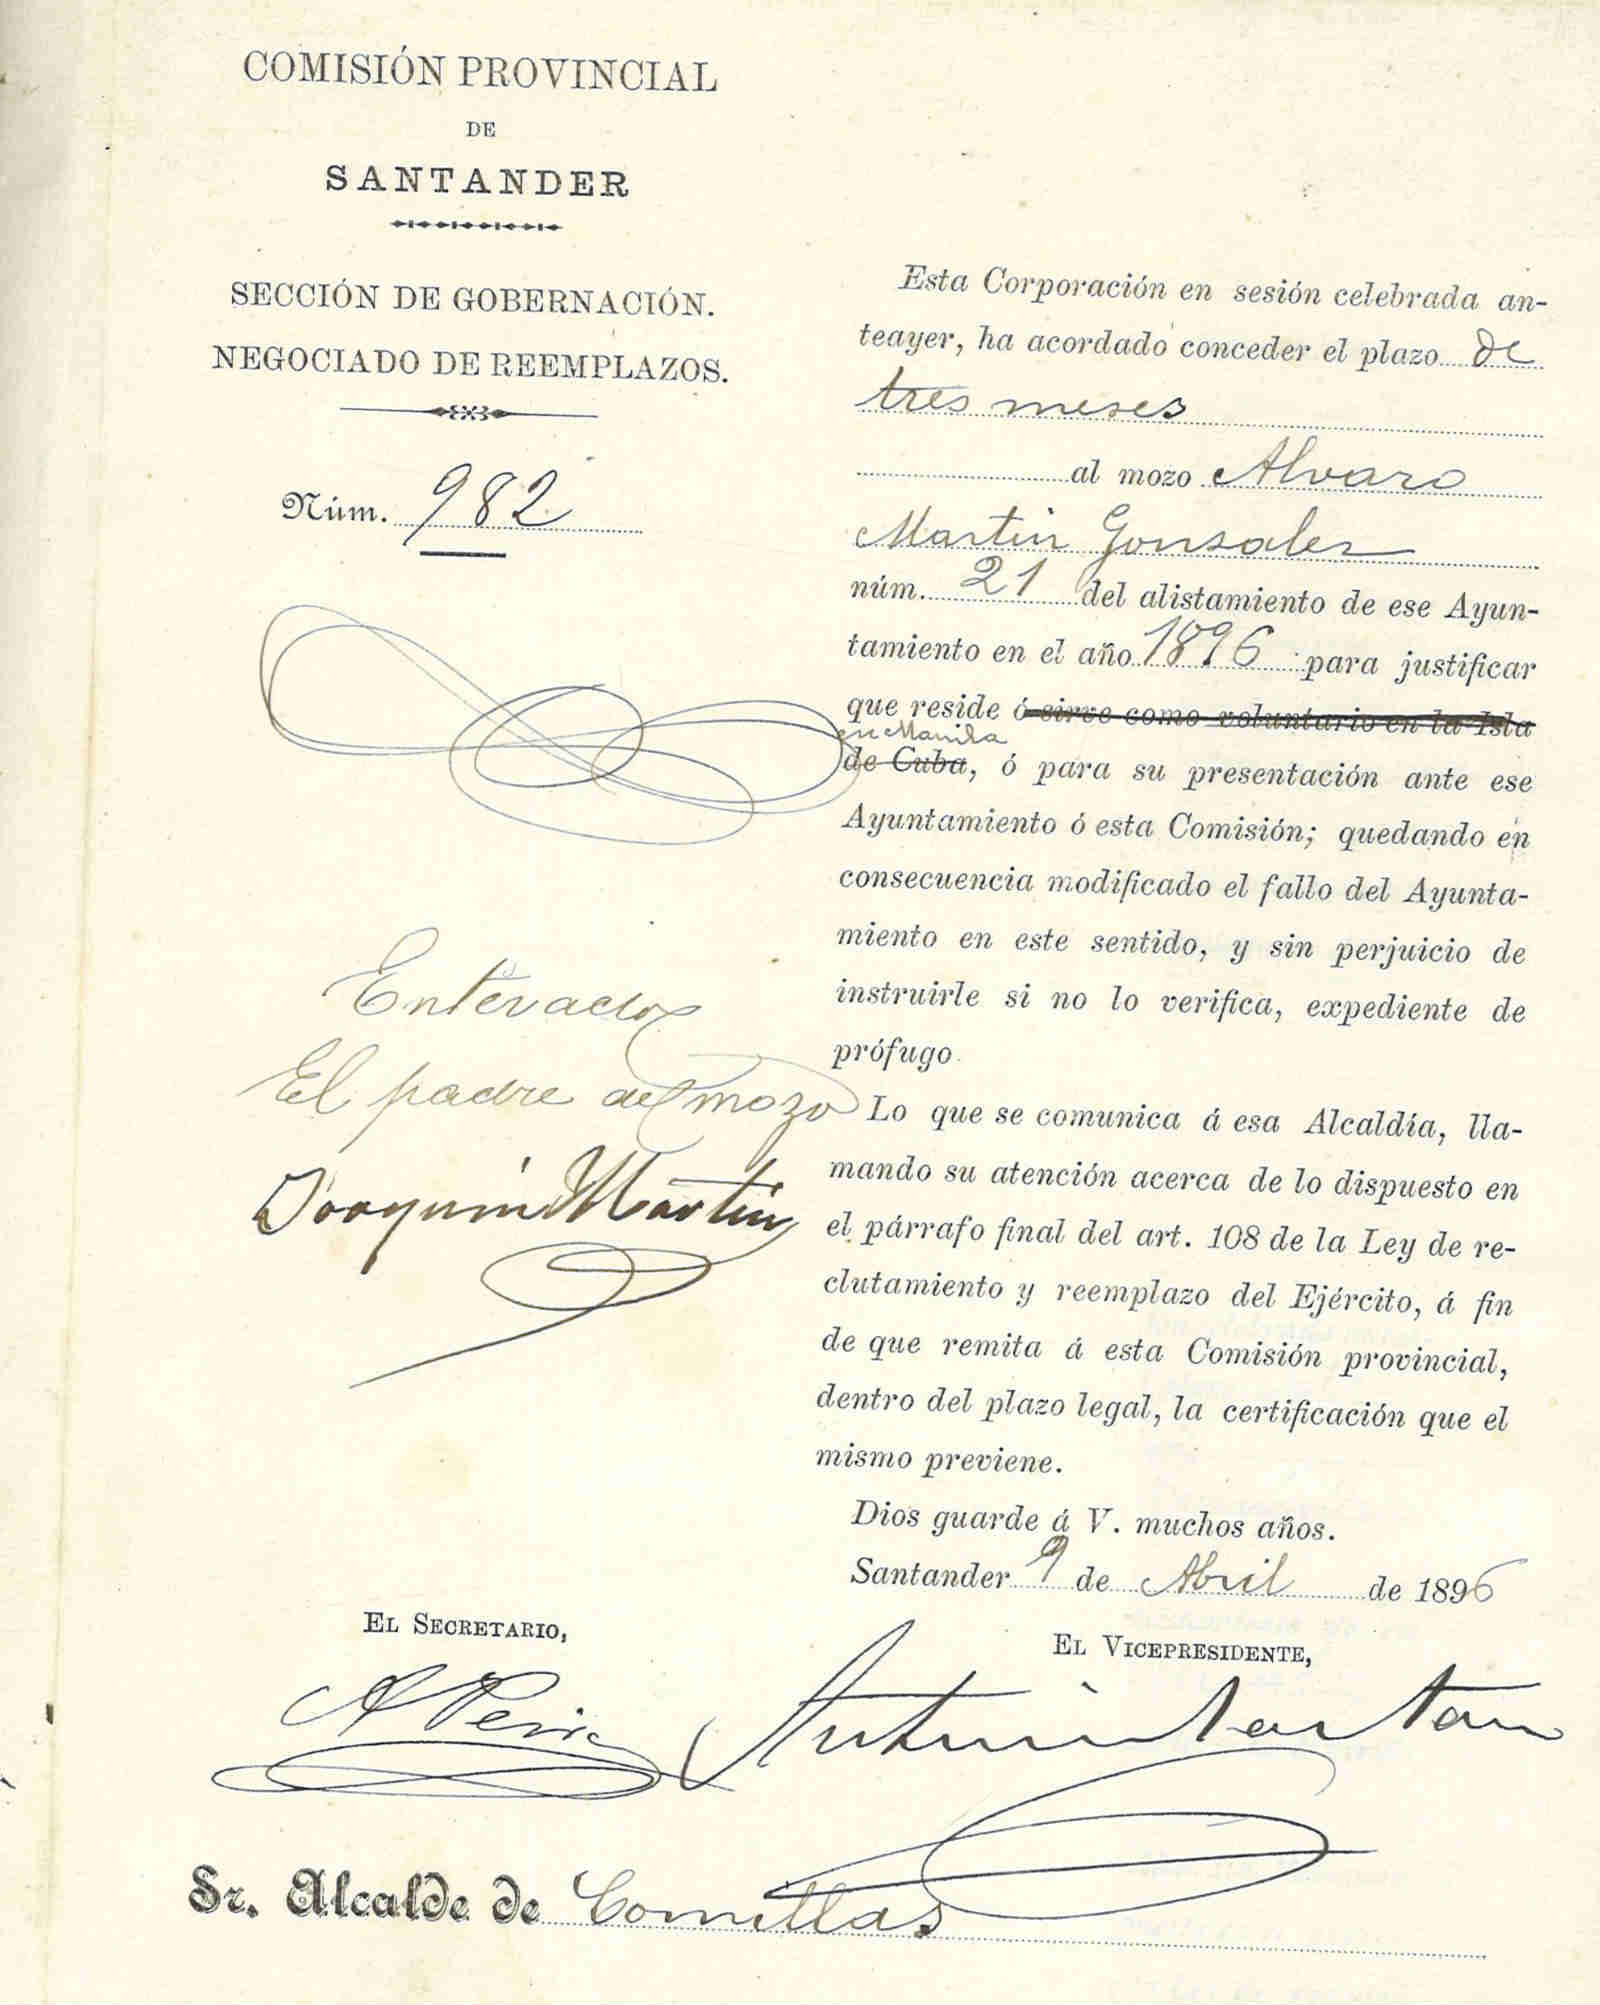 COMISIÓN PROVINCIAL
DE
SANTANDER
SECCIÓN DE GOBERNACIÓN.
NEGOCIADO DE REEMPLAZOS.
Núm. 982
Esta Corporación en sesión celebrada an-
teayer, ha acordado conceder el plazo de
tres meses
al mozo Alvaro
Martin Gonsalez
núm. 21 del alistamiento de ese Ayun-
tamiento en el año 1896 para justificar
que reside ó sirve como voluntario en la Isla
en Manila
de Cuba, ó para su presentación ante ese
Ayuntamiento ó esta Comisión; quedando en
consecuencia modificado el fallo del Ayunta-
miento en este sentido, y sin perjuicio de
instruirle si no lo verifica, expediente de
prófugo.
Lo que se comunica á esa Alcaldía, lla-
mando su atención acerca de lo dispuesto en
el párrafo final del art. 108 de la Ley de re-
clutamiento y reemplazo del Ejército, á fin
de que remita á esta Comisión provincial,
dentro del plazo legal, la certificación que el
mismo previene.
Dios guarde á V. muchos años.
Santander 9 de Abril de 1896
Enterado
El padre del mozo
Joaquin Martin
EL SECRETARIO,
EL VICEPRESIDENTE,
Sr. Alcalde de Comillas